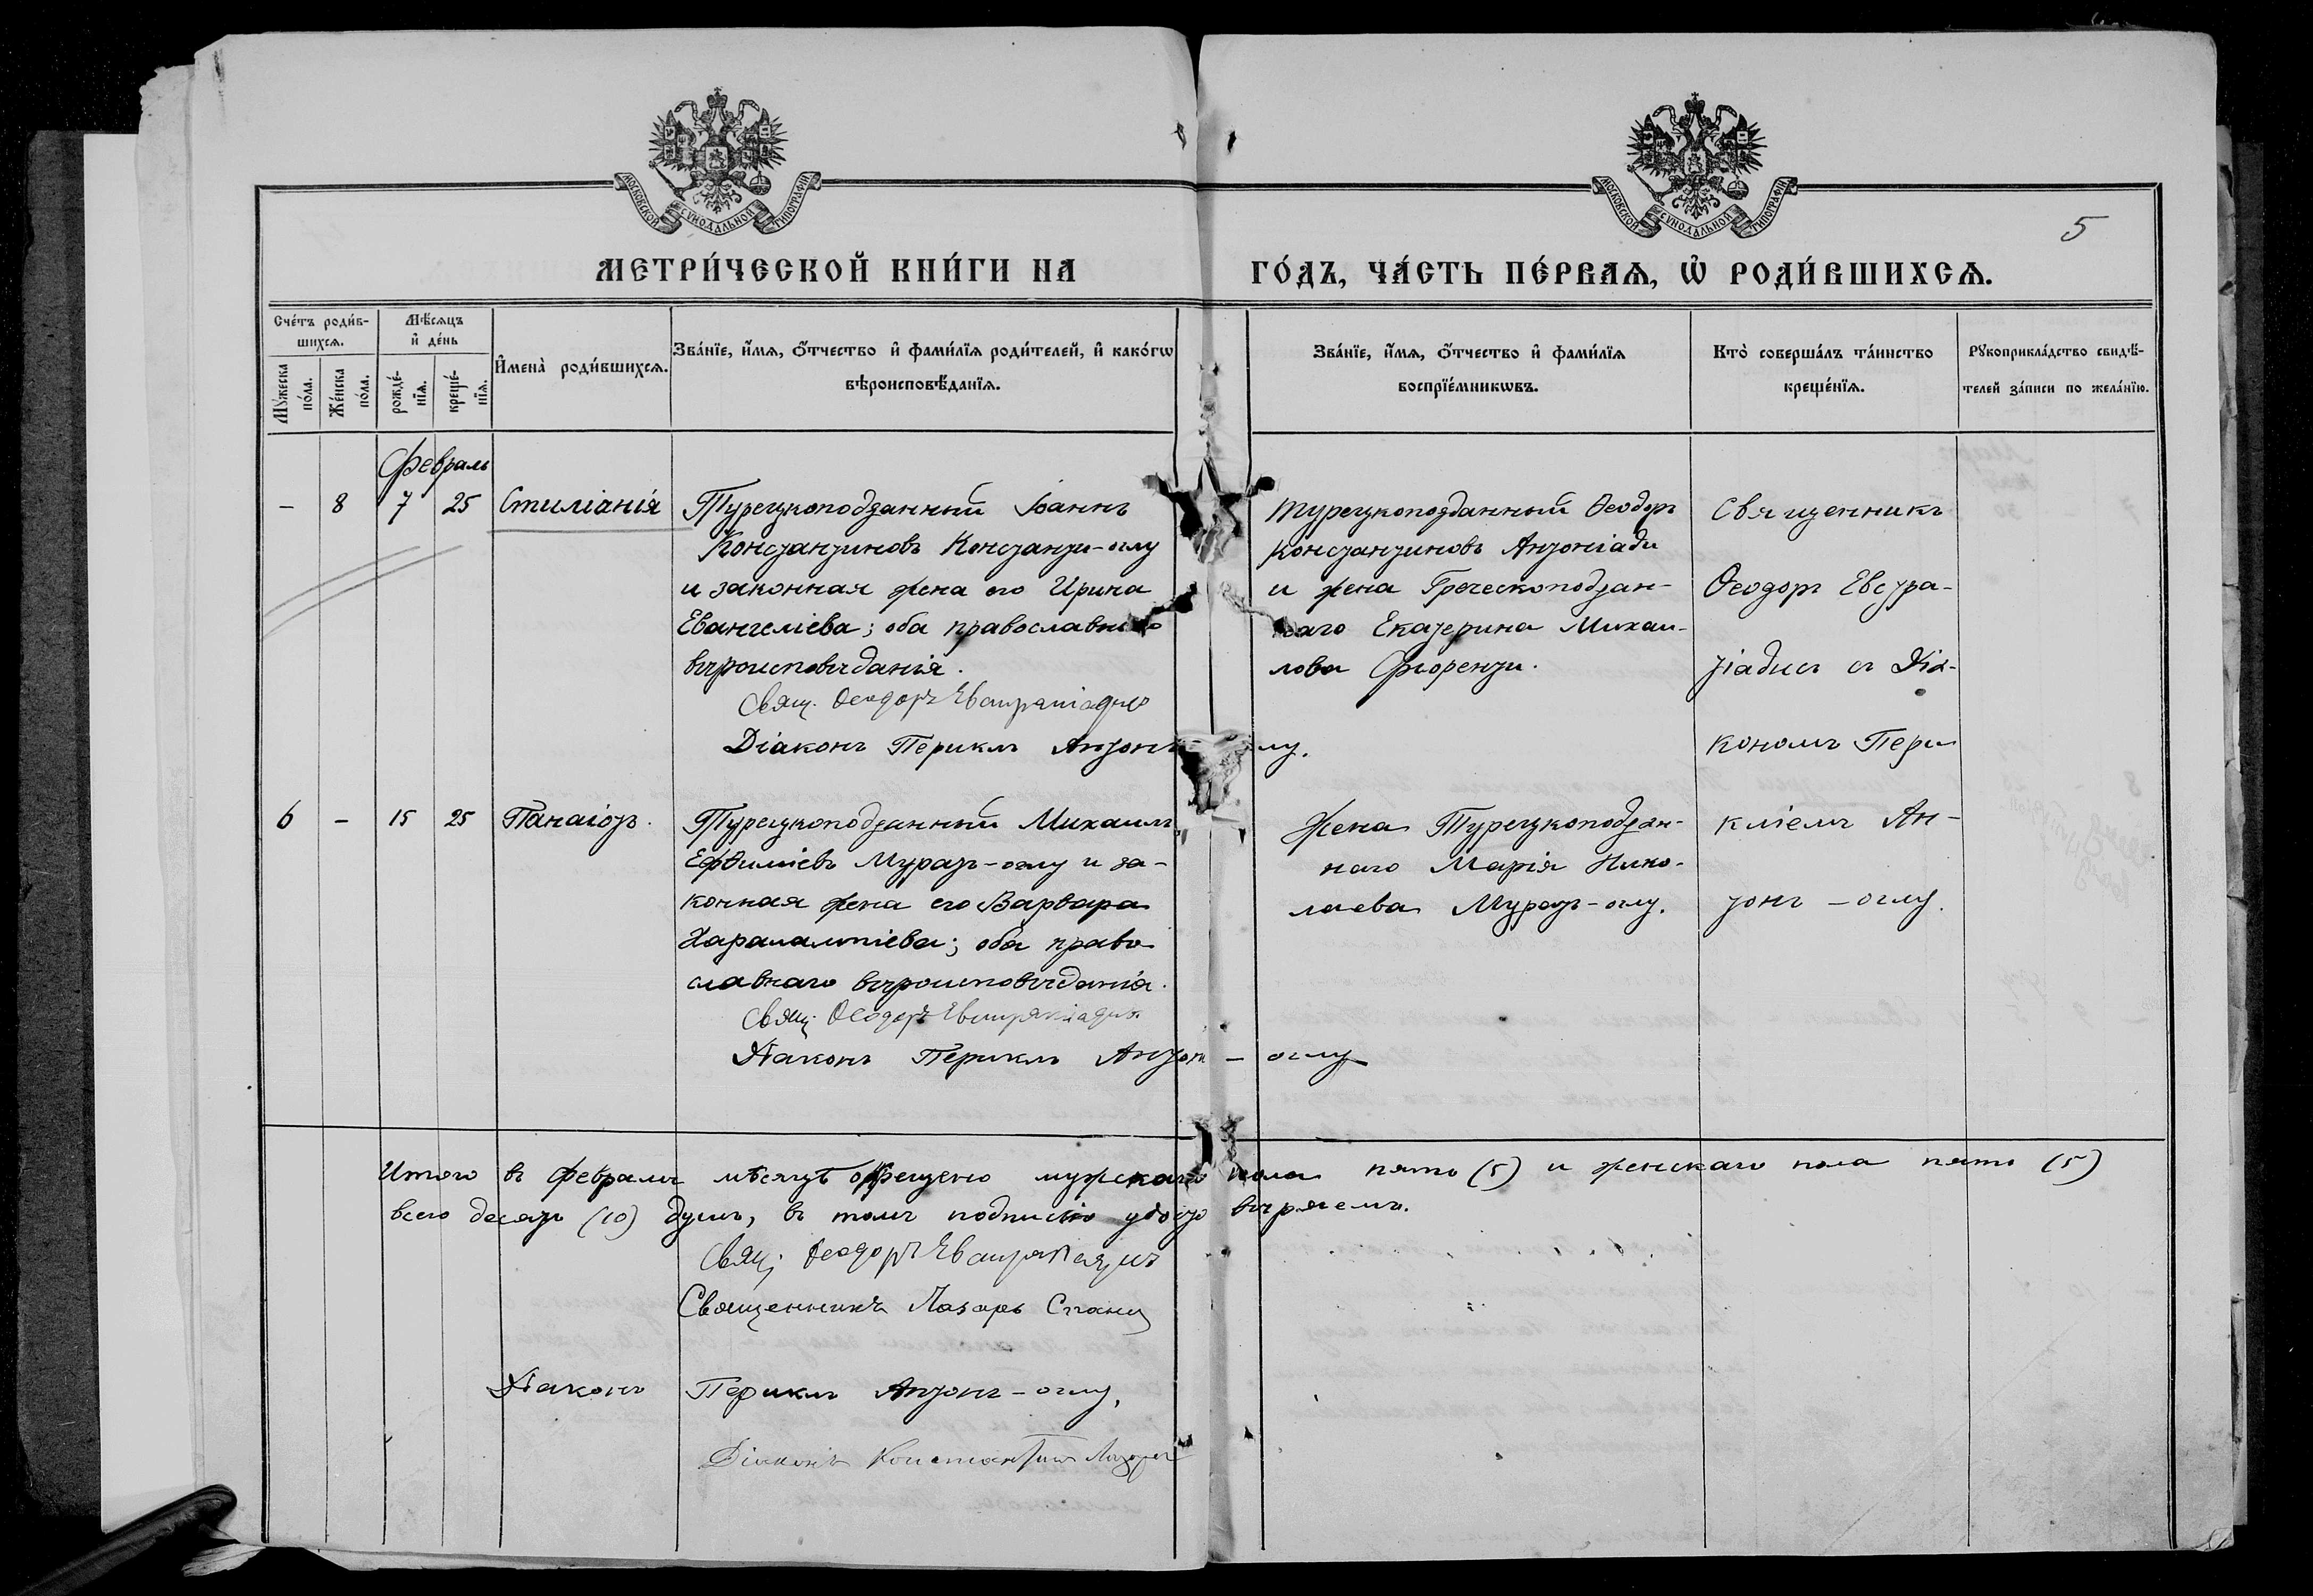 МОСКОВСКОЙ СѴНОДАЛЬНОЙ ТИПОГРАФІИ
МОСКОВСКОЙ СѴНОДАЛЬНОЙ ТИПОГРАФІИ
5
МЕТРИ́ЧЕСКОЙ КНИ́ГИ НА ГО́ДЪ, ЧА́СТЬ ПЕ́РВАѦ, Ѡ҆ РОДИ́ВШИХСѦ.
Сче́тъ роди́в-
шихсѧ.
Мѣ́сѧцъ
и҆ де́нь
Мꙋ́жеска
по́ла.
Же́нска
по́ла.
рожде́-
нїѧ.
креще́-
нїѧ.
И҆мена̀ роди́вшихсѧ.
Зва́нїе, и҆́мѧ, ѻ҆́тчество и҆ фами́лїѧ роди́телей, и҆ како́гѡ
вѣроисповѣ́данїѧ.
Зва́нїе, и҆́мѧ, ѻ҆́тчество и҆ фами́лїѧ
воспрїе́мникѡвъ.
Кто̀ соверша́лъ та́инство
креще́нїѧ.
Рꙋкоприкла́дство свидѣ́-
телей за́писи по жела́нїю.
Февраль
– 8 7 25 Стиліанія
Турецкоподданный Іоаннъ
Константиновъ Константи-оглу
и законная жена его Ирина
Евангеліева; оба православнаго
вѣроисповѣданія.
Свящ. Ѳеодоръ Евстратіадисъ
Діаконъ Периклъ Антонъ-оглу.
Турецкоподданный Ѳеодоръ
Константиновъ Антоніади
и жена Греческоподдан-
наго Екатерина Михаи-
лова Фіоренти.
Священникъ
Ѳеодоръ Евстра-
тіадисъ съ Діа-
кономъ Пери
кліемъ Ан-
тонъ-оглу.
6 – 15 25 Панаіотъ.
Турецкоподданный Михаилъ
Ефѳиміевъ Муратъ-оглу и за-
конная жена его Варвара
Харалампіева; оба право-
славнаго вѣроисповѣданія.
Свящ. Ѳеодоръ Евстратіадисъ
Діаконъ Периклъ Антонъ – оглу
Жена Турецкоподдан-
наго Марія Нико-
лаева Муратъ-оглу.
Итого въ февралѣ мѣсяцѣ крещено мужскаго пола пять (5) и женскаго пола пять (5)
всего десять (10) душъ, въ томъ подписью удостовѣряемъ.
Свящ. Ѳеодоръ Евстратіадисъ
Священникъ Лазарь
Діаконъ Периклъ Антонъ-оглу,
Діаконъ Константинъ